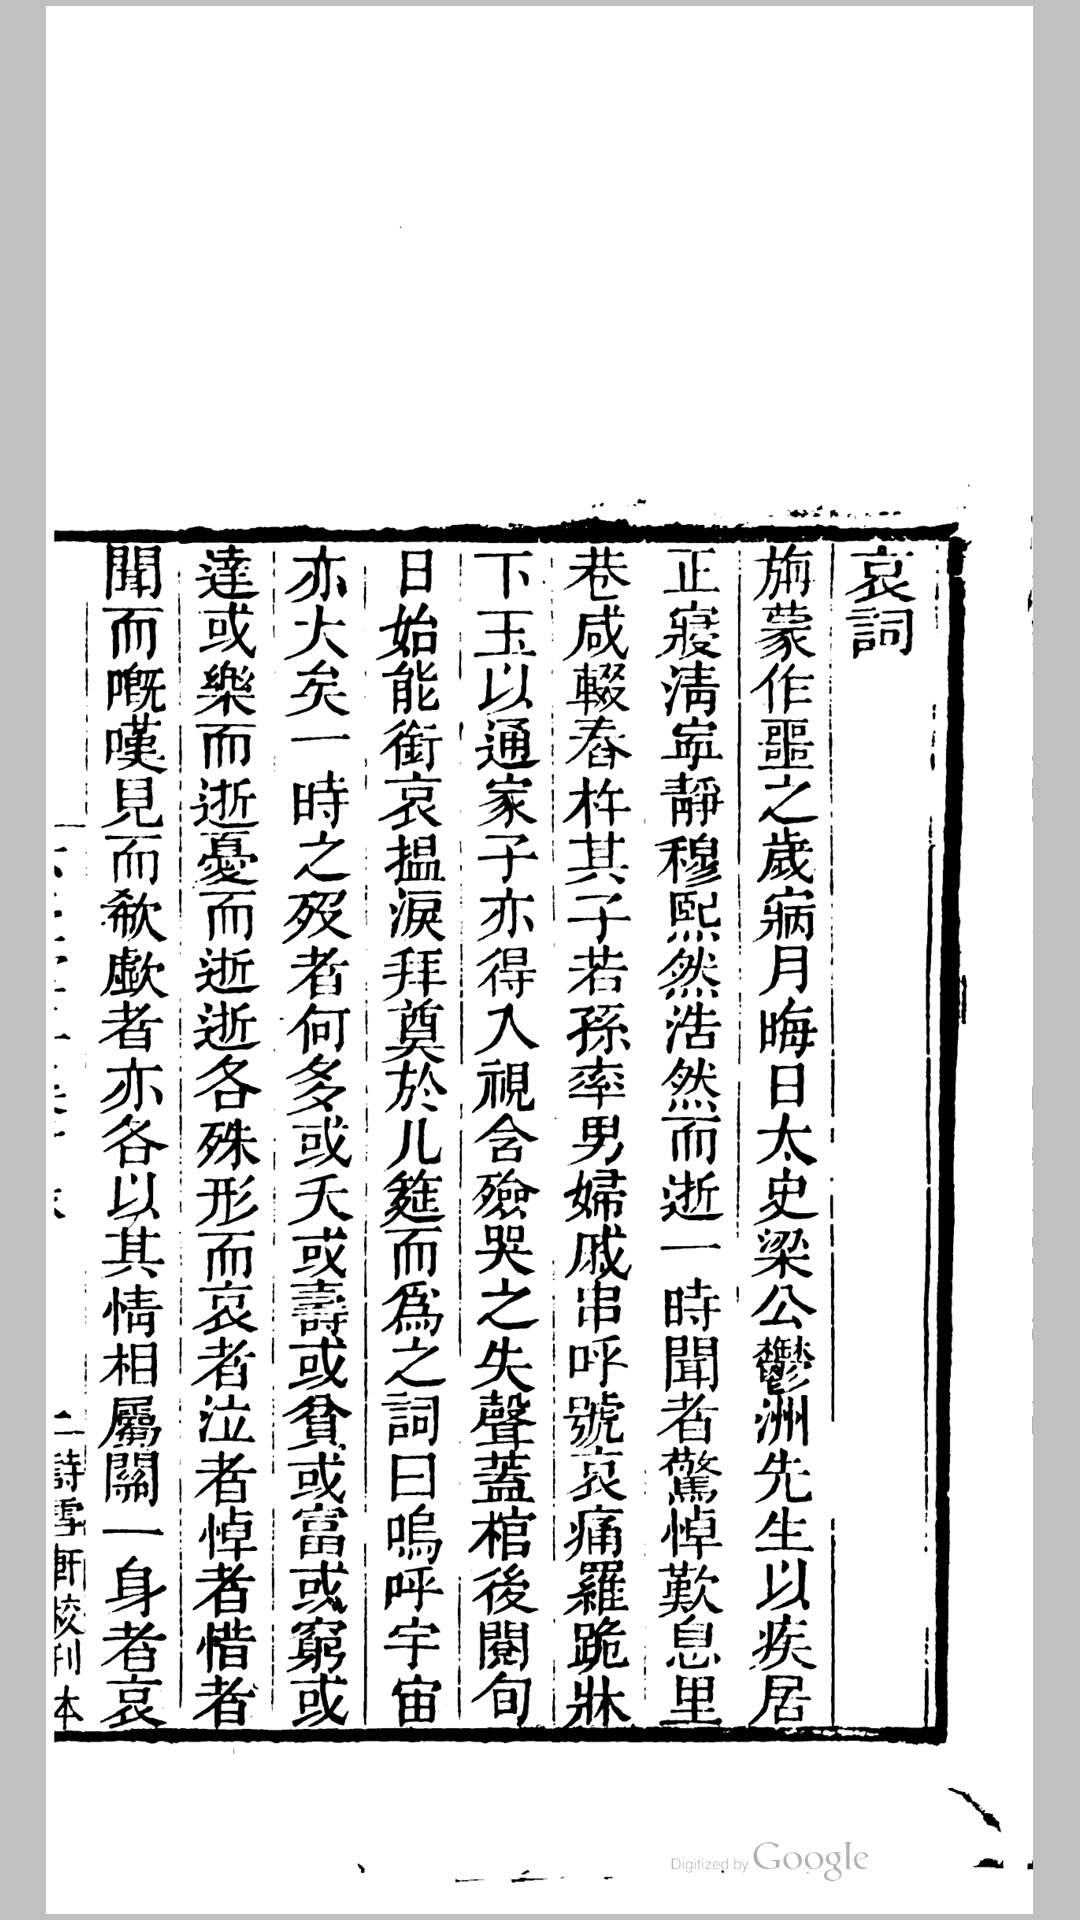 哀詞
旃蒙作噩之歲寎月晦日太史梁公鬱洲先生以疾居
正寢清寍靜穆熙然浩然而逝一時聞者驚悼歎息里
巷咸輟舂杵其子若孫率男婦戚串呼號哀痛羅跪牀
下玉以通家子亦得入視含殮哭之失聲蓋棺後閱旬
日始能銜哀搵淚拜奠於几筵而為之詞曰嗚呼宇宙
亦大矣一時之歿者何多或夭或壽或貧或富或窮或
達或樂而逝憂而逝逝各殊形而哀者泣者悼者惜者
聞而嘅嘆見而欷歔者亦各以其情相屬關一身者哀
二 詩雪軒校刊本
Digitized by Google